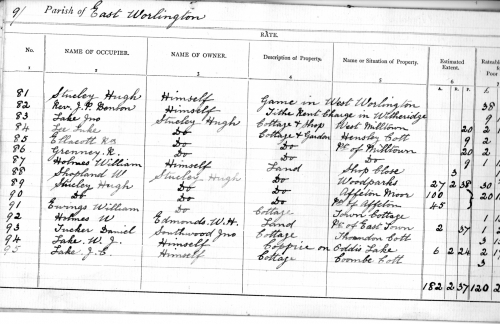 91 Parish of East Worlington
RATE.
No. NAME OF OCCUPIER. NAME OF OWNER. Description of Property. Name or Situation of Property. Estimated Extent. Rateable
1 2 3 4 5 6
A. R. P.
81 Stucley Hugh Himself Game in West Worlington
82 Rev. J. P. Benson Himself Tithe Rent Charge in Witheridge 38
83 Lake Jno Stucley Hugh Cottage & Shop West Milltown 9
84 Lee Luke Do Cottage & Garden Hensley Cott 20 2
85 Ellacott Do Do Pt of Milltown 9 2
86 Grenney R. Do Do Do 20
87 Holmes William Himself Land Shop Close 9 1
88 Shopland W Stucley Hugh Do Woodparks 3
89 Stucley Hugh Do Do Affeton Moor 27 2 38 30
90 Do Do Do Pt of Affeton 100 20
91 Ewings William Do Cottage Town Cottage 45
92 Holmes W Edmonds W. H. Land Pt of East Town
93 Tucker Daniel Southwood Jno Cottage Thorndon Cott 2 37
94 Lake W. J. Himself Coppice on Eddis Lake
95 Lake J. C. Himself Cottage Coombe Cott 6 2 24
182 2 37 120